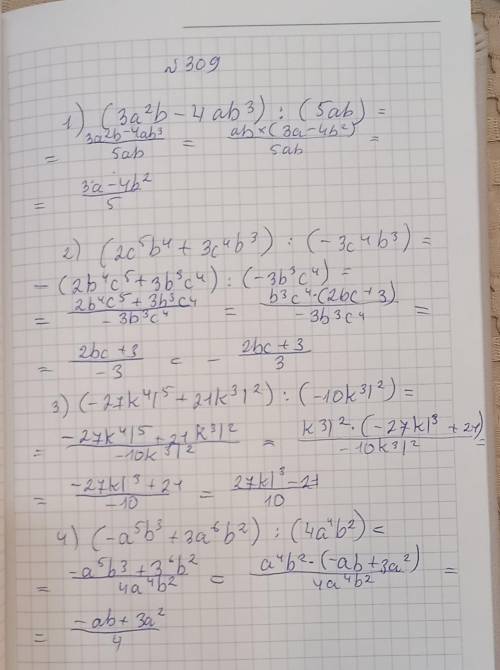 №309
1) (3a²b - 4ab³) : (5ab) =
= \frac{3a²b-4ab³}{5ab} = \frac{ab×(3a-4b²)}{5ab} =
= \frac{3a-4b²}{5}
2) (2c⁵b⁴ + 3c⁴b³) : (-3c⁴b³) =
- (2b⁴c⁵ + 3b³c⁴) : (-3b³c⁴) =
= \frac{2b⁴c⁵ + 3b³c⁴}{-3b³c⁴} = \frac{b³c⁴·(2bc+3)}{-3b³c⁴} =
= \frac{2bc+3}{-3} = - \frac{2bc+3}{3}
3) (-27k⁴l⁵ + 21k³l²) : (-10k³l²) =
= \frac{-27k⁴l⁵ + 21k³l²}{-10k³l²} = \frac{k³l²·(-27kl³+21)}{-10k³l²} =
= \frac{-27kl³+21}{-10} = \frac{27kl³-21}{10}
4) (-a⁵b³ + 3a⁶b²) : (4a⁴b²) =
= \frac{-a⁵b³ + 3⁶b²}{4a⁴b²} = \frac{a⁴b²·(-ab+3a²)}{4a⁴b²} =
= \frac{-ab+3a²}{4}